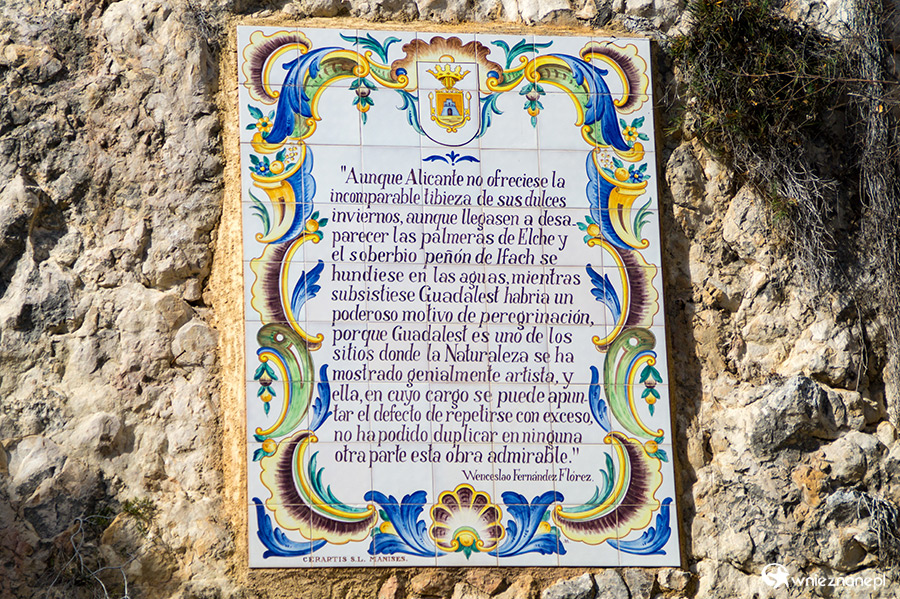 "Aunque Alicante no ofreciese la
incomparable tibieza de sus dulces
inviernos, aunque llegasen a desa-
parecer las palmeras de Elche y
el soberbio peñón de Ifach se
hundiese en las aguas, mientras
subsistiese Guadalest habria un
poderoso motivo de peregrinación,
porque Guadalest es uno de los
sitios donde la Naturaleza se ha
mostrado genialmente artista, y
ella, en cuyo cargo se puede apun-
tar el defecto de repetirse con exceso,
no ha podido duplicar en ninguna
otra parte esta obra admirable."
Wenceslao Fernández Flórez.
CERAPTIS S.L. MANISES.
wnieznane.pl